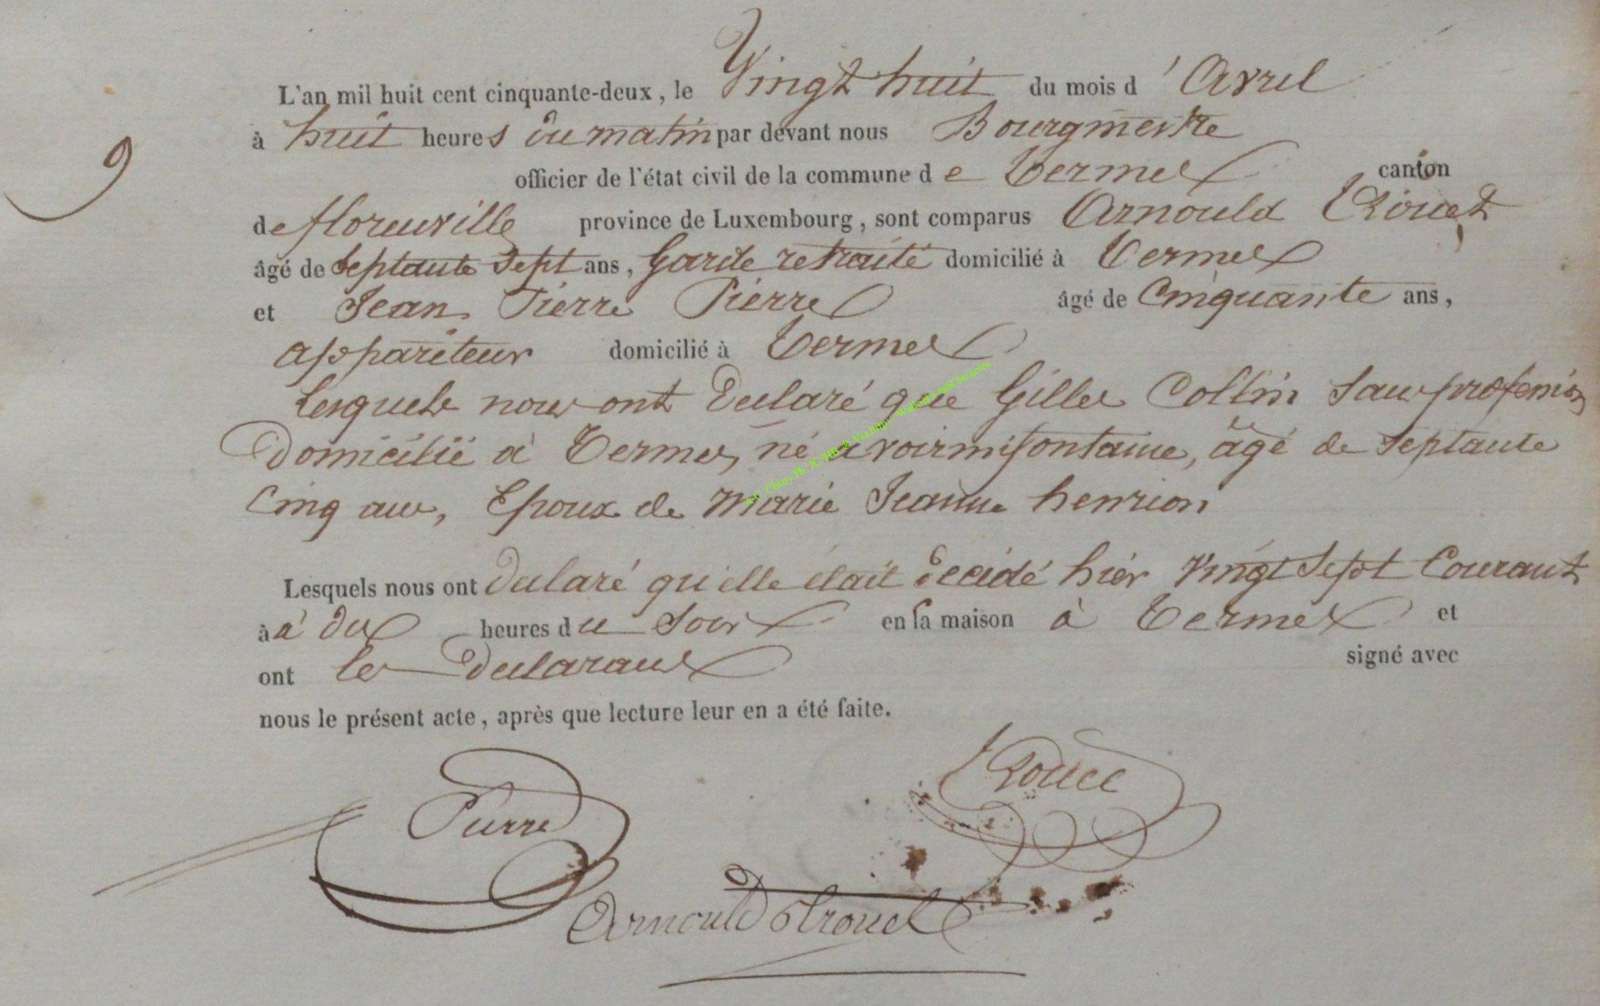 L'an mil huit cent cinquante-deux, le Vingt huit du mois d'Avril
9
à huit heures du matin par devant nous Bourgmestre
officier de l'état civil de la commune de Termes canton
de florenville province de Luxembourg, sont comparus Arnould
âgé de Septante Sept ans, Garde retraité domicilié à Termes
et Jean Pierre Pierre âgé de Cinquante ans,
appariteur domicilié à Termes
lesquels nous ont declaré que Gilles Collin Sans profession
Domicilié à Termes, né a voirmifontaine, âgé de Septante
Cinq ans, Epoux de Marie Jeanne henrion
Lesquels nous ont declaré qu'elle était décidé hier Vingt Sept Courant
à à dix heures du Soir en sa maison à Termes et
ont les declarans signé avec
nous le présent acte, après que lecture leur en a été faite.
Pierre
Arnould